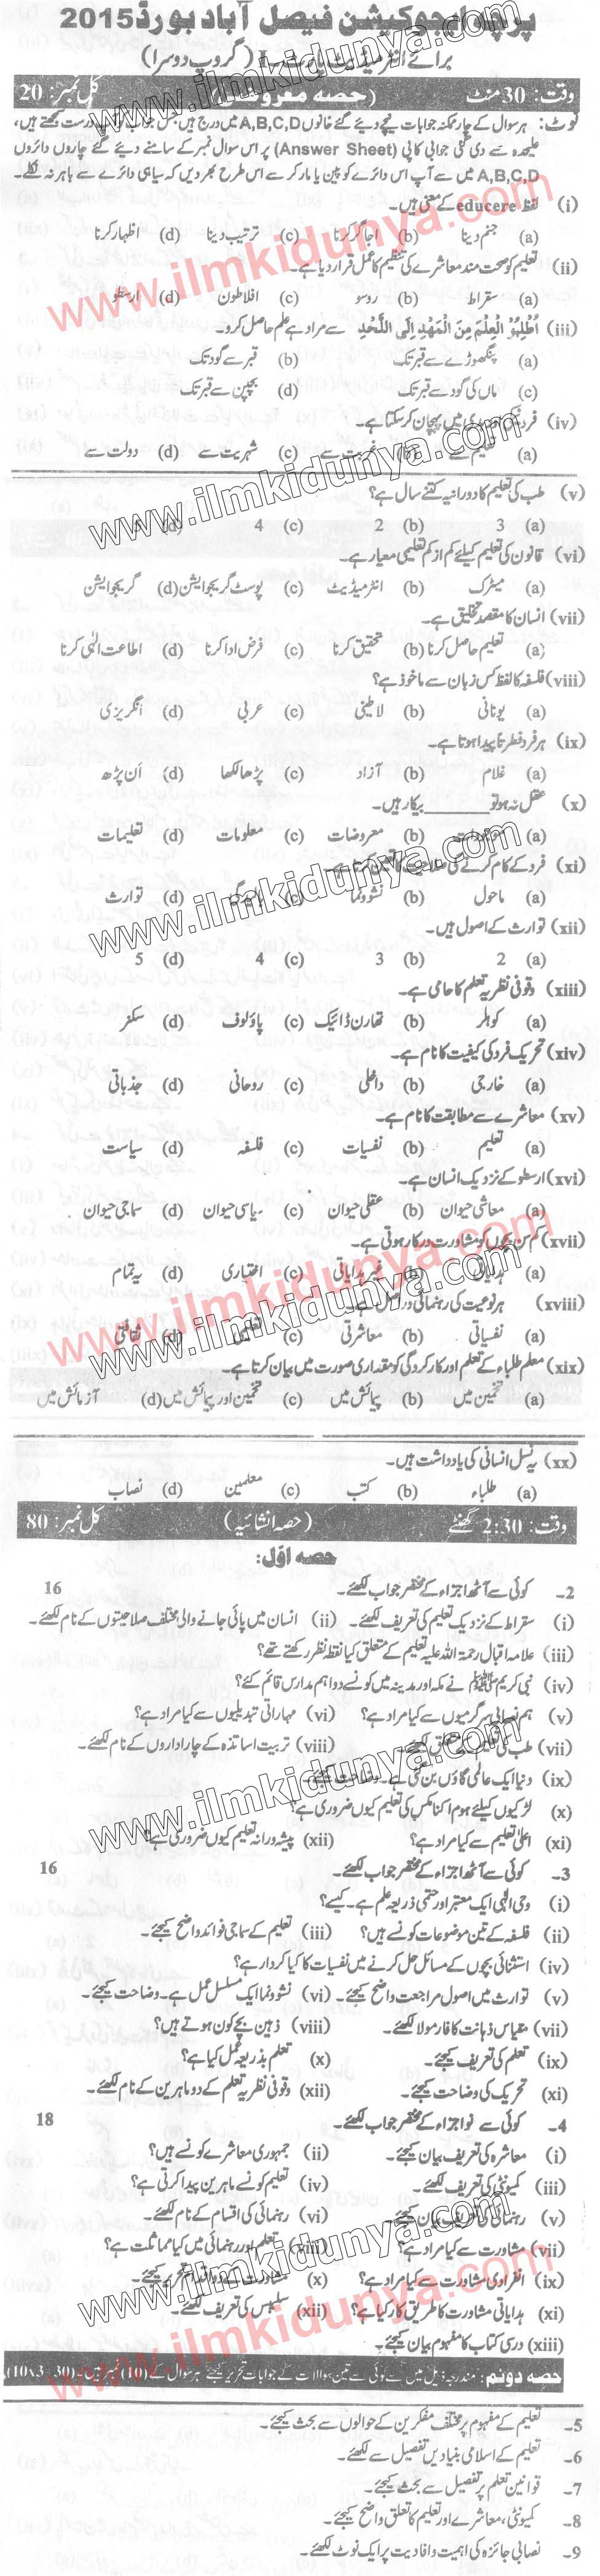 پرچہ ایجوکیشن فیصل آباد بورڈ 2015
برائے انٹرمیڈیٹ پارٹ (گروپ دوسرا)
وقت: 30 منٹ (حصہ معروضی) کل نمبر: 20
نوٹ: ہر سوال کے چار ممکنہ جوابات نیچے دیے گئے خانوں A,B,C,D میں درج ہیں جس جواب کو آپ درست سمجھتے ہیں،
علیحدہ سے دی گئی جوابی کاپی (Answer Sheet) پر اس سوال نمبر کے سامنے دیے گئے چاروں دائروں
A,B,C,D میں سے آپ اس دائرے کو پین یا مارکر سے اس طرح بھر دیں کہ سیاہی دائرے سے باہر نہ نکلے۔
(i) لفظ educere کے معنی ہیں۔
(a) جنم دینا (b) اجاگر کرنا (c) ترتیب دینا (d) اظہار کرنا
(ii) تعلیم کو صحت مند معاشرے کی تنظیم کا عمل قرار دیا ہے۔
(a) سقراط (b) روسو (c) افلاطون (d) ارسطو
(iii) اُطْلِبُو الْعِلْمَ مِنَ الْمَهْدِ اِلَی اللَّحْد سے مراد ہے علم حاصل کرو۔
(a) پنگھوڑے سے قبر تک (b) قبر سے گود تک
(c) ماں کی گود سے قبر تک (d) بچپن سے قبر تک
(iv) فرد نیکی اور بدی میں پہچان کر سکتا ہے۔
(a) تعلیم سے (b) تربیت سے (c) شہریت سے (d) دولت سے
(v) طب کی تعلیم کا دورانیہ کتنے سال ہے؟
(a) 3 (b) 2 (c) 4 (d) 5
(vi) قانون کی تعلیم کیلئے کم از کم تعلیمی معیار ہے۔
(a) میٹرک (b) انٹرمیڈیٹ (c) پوسٹ گریجوایشن (d) گریجوایشن
(vii) انسان کا مقصد تخلیق ہے۔
(a) تعلیم حاصل کرنا (b) تحقیق کرنا (c) فرض ادا کرنا (d) اطاعت الٰہی کرنا
(viii) فلسفہ کا لفظ کس زبان سے ماخوذ ہے؟
(a) یونانی (b) لاطینی (c) عربی (d) انگریزی
(ix) ہر فرد فطرتاً پیدا ہوتا ہے۔
(a) غلام (b) آزاد (c) پڑھا لکھا (d) ان پڑھ
(x) عقل نہ ہو تو ______ بیکار ہیں۔
(a) (b) معروضات (c) معلومات (d) تعلیمات
(xi) فرد کے کام کرنے کی صلاحیت
(a) ماحول (b) نشوونما (c) (d) توارث
(xii) توارث کے اصول ہیں۔
(a) 2 (b) 3 (c) 4 (d) 5
(xiii) وقوفی نظریہ تعلم کا حامی ہے۔
(a) کوہلر (b) تھارن ڈائیک (c) پاؤلوف (d) سکنر
(xiv) تحریک فرد کی کیفیت کا نام ہے۔
(a) خارجی (b) داخلی (c) روحانی (d) جذباتی
(xv) معاشرے سے مطابقت کا نام ہے۔
(a) تعلیم (b) نفسیات (c) فلسفہ (d) سیاست
(xvi) ارسطو کے نزدیک انسان ہے۔
(a) معاشی حیوان (b) عقلی حیوان (c) سیاسی حیوان (d) سماجی حیوان
(xvii) کم سن بچوں کو مشاورت درکار ہوتی ہے۔
(a) ہدایاتی (b) غیر ہدایاتی (c) اختیاری (d) یہ تمام
(xviii) ہر نوعیت کی رہنمائی دراصل ہے۔
(a) نفسیاتی (b) معاشرتی (c) تعلیمی (d) ثقافتی
(xix) معلم طلباء کے تعلم اور کارکردگی کو مقداری صورت میں بیان کرتا ہے۔
(a) تخمین میں (b) پیمائش میں (c) تخمین اور پیمائش میں (d) آزمائش میں
(xx) یہ نسل انسانی کی یادداشت ہیں۔
(a) طلباء (b) کتب (c) معلمین (d) نصاب
وقت: 2:30 گھنٹے (حصہ انشائیہ) کل نمبر: 80
حصہ اوّل:
2۔ کوئی سے آٹھ اجزاء کے مختصر جواب لکھیئے۔ 16
(i) سقراط کے نزدیک تعلیم کی تعریف لکھیئے۔ (ii) انسان میں پائی جانے والی مختلف صلاحیتوں کے نام لکھیئے۔
(iii) علامہ اقبال رحمۃ اللہ علیہ تعلیم کے متعلق کیا نقطہ نظر رکھتے تھے؟
(iv) نبی کریم ﷺ نے مکہ اور مدینہ میں کونسے دو اہم مدارس قائم کئے؟
(v) ہم نصابی سرگرمیوں سے کیا مراد ہے؟ (vi) مہاراتی تبدیلیوں سے کیا مراد ہے؟
(vii) طب کی لکھیئے۔ (viii) تربیت اساتذہ کے چار اداروں کے نام لکھیئے۔
(ix) دنیا ایک عالمی گاؤں بن گئی ہے۔ وضاحت کیجئے۔
(x) لڑکیوں کیلئے ہوم اکنامکس کی تعلیم کیوں ضروری ہے؟
(xi) اعلیٰ تعلیم سے کیا مراد ہے؟ (xii) پیشہ ورانہ تعلیم کیوں ضروری ہے؟
3۔ کوئی سے آٹھ اجزاء کے مختصر جواب لکھیئے۔ 16
(i) وحی الٰہی ایک معتبر اور حتمی ذریعہ علم ہے۔ کیسے؟
(ii) فلسفہ کے تین موضوعات کونسے ہیں؟ (iii) تعلیم کے سماجی فوائد واضح کیجئے۔
(iv) استثنائی بچوں کے مسائل حل کرنے میں نفسیات کا کیا کردار ہے؟
(v) توارث میں اصول مراجعت واضح کیجئے۔ (vi) نشوونما ایک مسلسل عمل ہے۔ وضاحت کیجئے۔
(vii) مقیاس ذہانت کا فارمولا لکھیئے۔ (viii) ذہین بچے کون ہوتے ہیں؟
(ix) تعلم کی تعریف کیجئے۔ (x) تعلم بذریعہ عمل کیا ہے؟
(xi) تحریک کی وضاحت کیجئے۔ (xii) وقوفی نظریہ تعلم کے دو ماہرین کے نام لکھیئے۔
4۔ کوئی سے نو اجزاء کے مختصر جواب لکھیئے۔ 18
(i) معاشرہ کی تعریف بیان کیجئے۔ (ii) جمہوری معاشرے کونسے ہیں؟
(iii) کمیونٹی کی تعریف لکھیئے۔ (iv) تعلیم کونسے ماہرین پیدا کرتی ہے؟
(v) رہنمائی کی تعریف بیان کیجئے۔ (vi) رہنمائی کی اقسام کے نام لکھیئے۔
(vii) مشاورت سے کیا مراد ہے؟ (viii) تعلیم اور رہنمائی میں کیا مماثلت ہے؟
(ix) انفرادی مشاورت سے کیا مراد ہے؟ (x) مشاورت کے دو تحریر کیجئے۔
(xi) ہدایاتی مشاورت کا طریق کار کیا ہے؟ (xii) سلیبس کی تعریف لکھیئے۔
(xiii) درسی کتاب کا مفہوم بیان کیجئے۔
حصہ دوئم: مندرجہ ذیل میں سے کوئی سے تین سوالات کے جوابات تحریر کیجئے۔ ہر سوال کے (10) نمبر ہیں۔ (10x3=30)
5۔ تعلیم کے مفہوم پر مختلف مفکرین کے حوالوں سے بحث کیجئے۔
6۔ تعلیم کے اسلامی بنیادیں تفصیل سے لکھئے۔
7۔ قوانین تعلم پر تفصیل سے بحث کیجئے۔
8۔ کمیونٹی، معاشرے اور تعلیم کا تعلق واضح کیجئے۔
9۔ نصابی جائزہ کی اہمیت و افادیت پر ایک نوٹ لکھئے۔
www.ilmkidunya.com